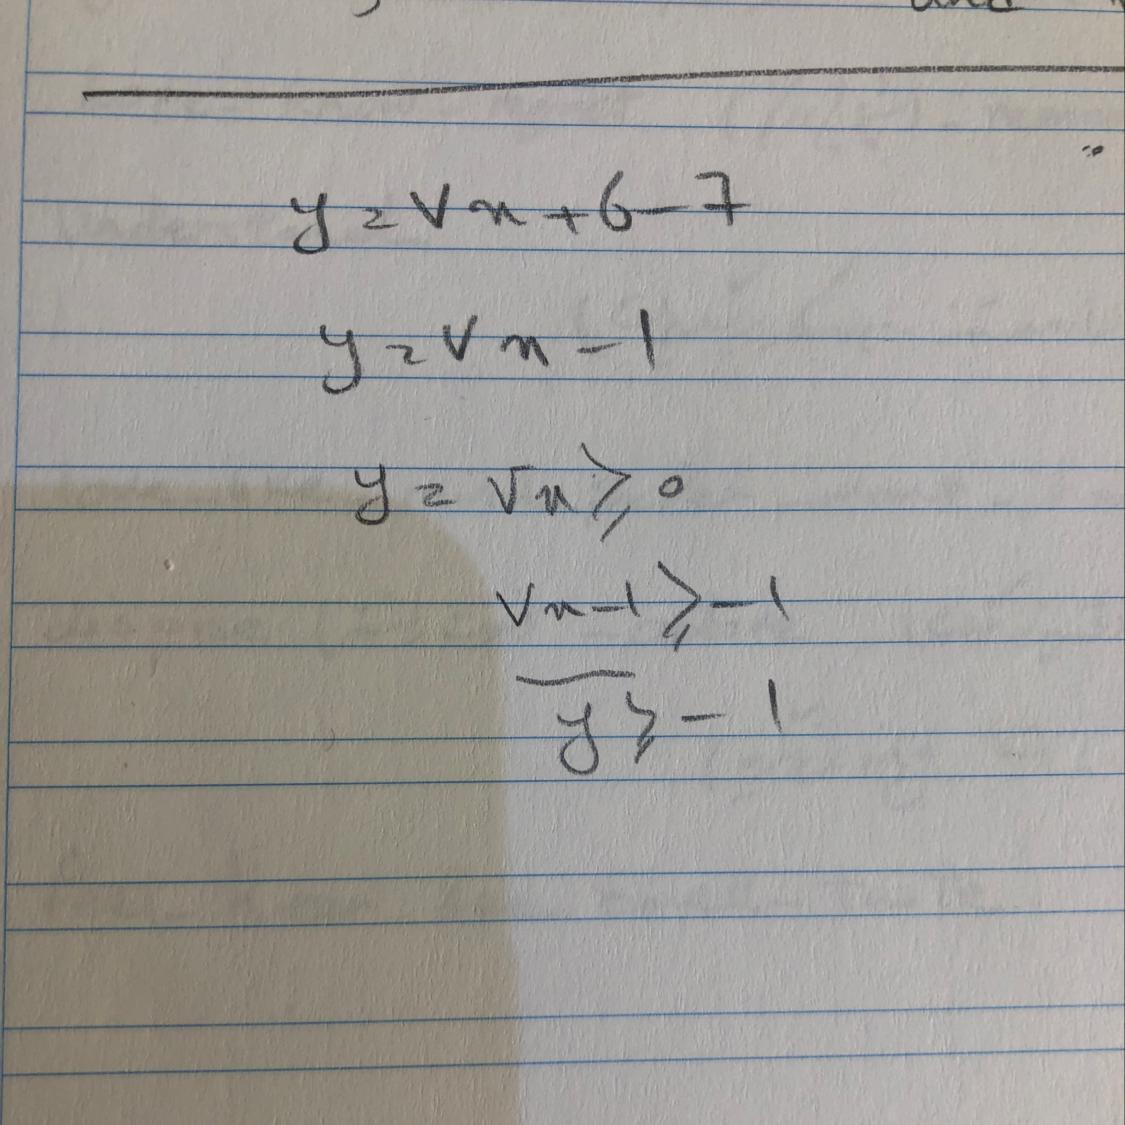 y = √x + 6 - 7
y = √x - 1
y = √x ⩾ 0
√x - 1 ⩾ -1
y ⩾ -1